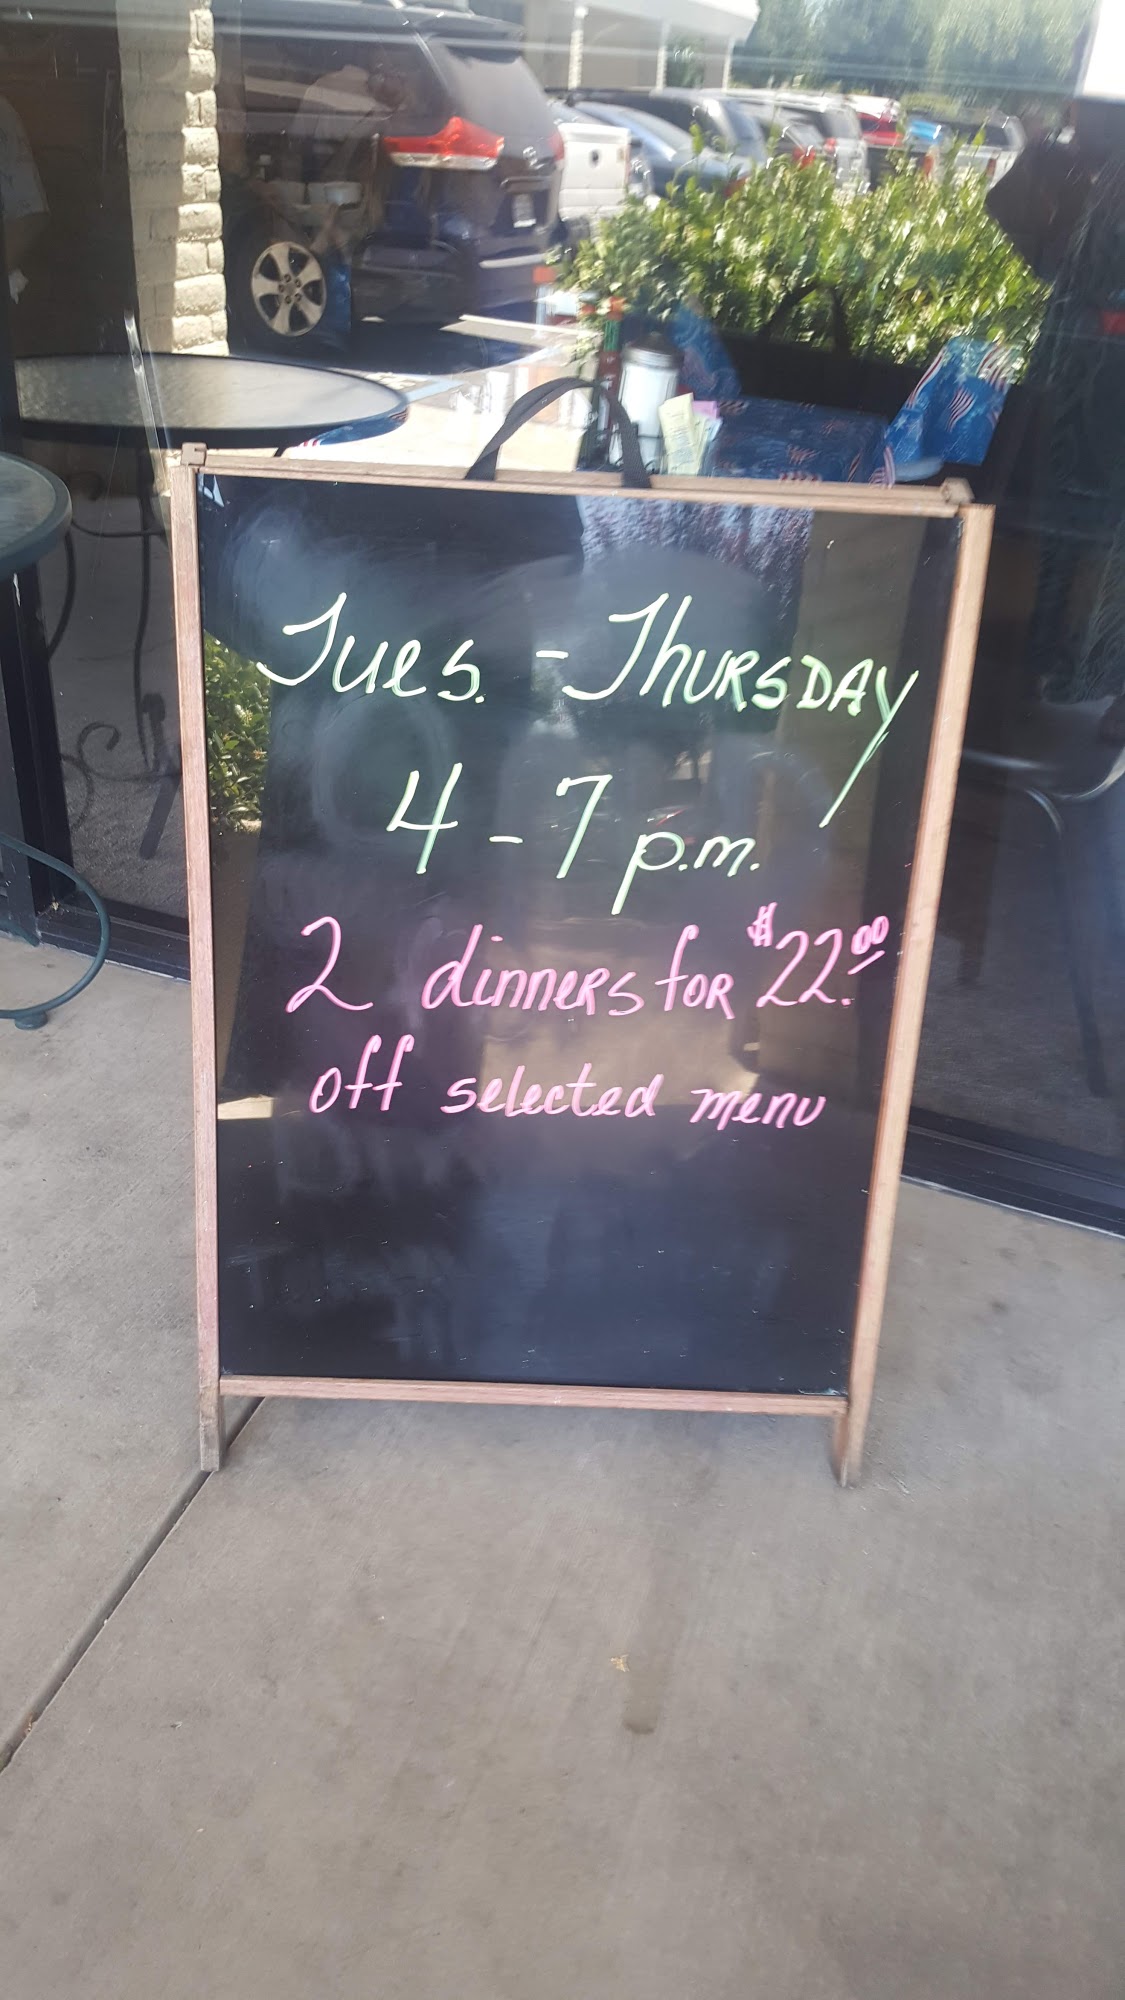 Tues. - Thursday
4 - 7 p.m.
2 dinners for $22.00
off selected menu